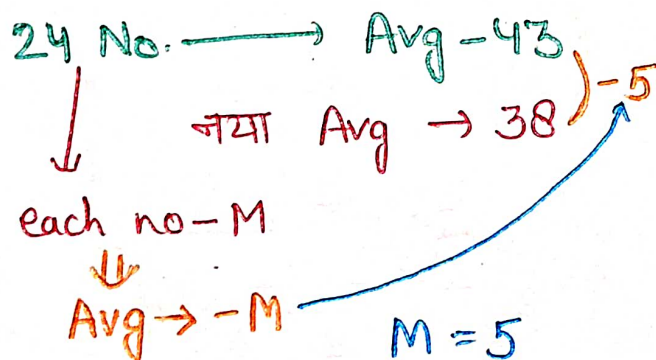 24 No. → Avg - 43
नया Avg → 38 ) -5
each no - M
Avg → - M
M = 5